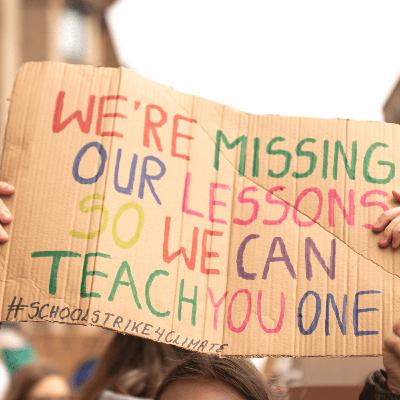 WE'RE MISSING
OUR LESSONS
SO WE CAN
TEACH YOU ONE
#SCHOOLSTRIKE4CLIMATE